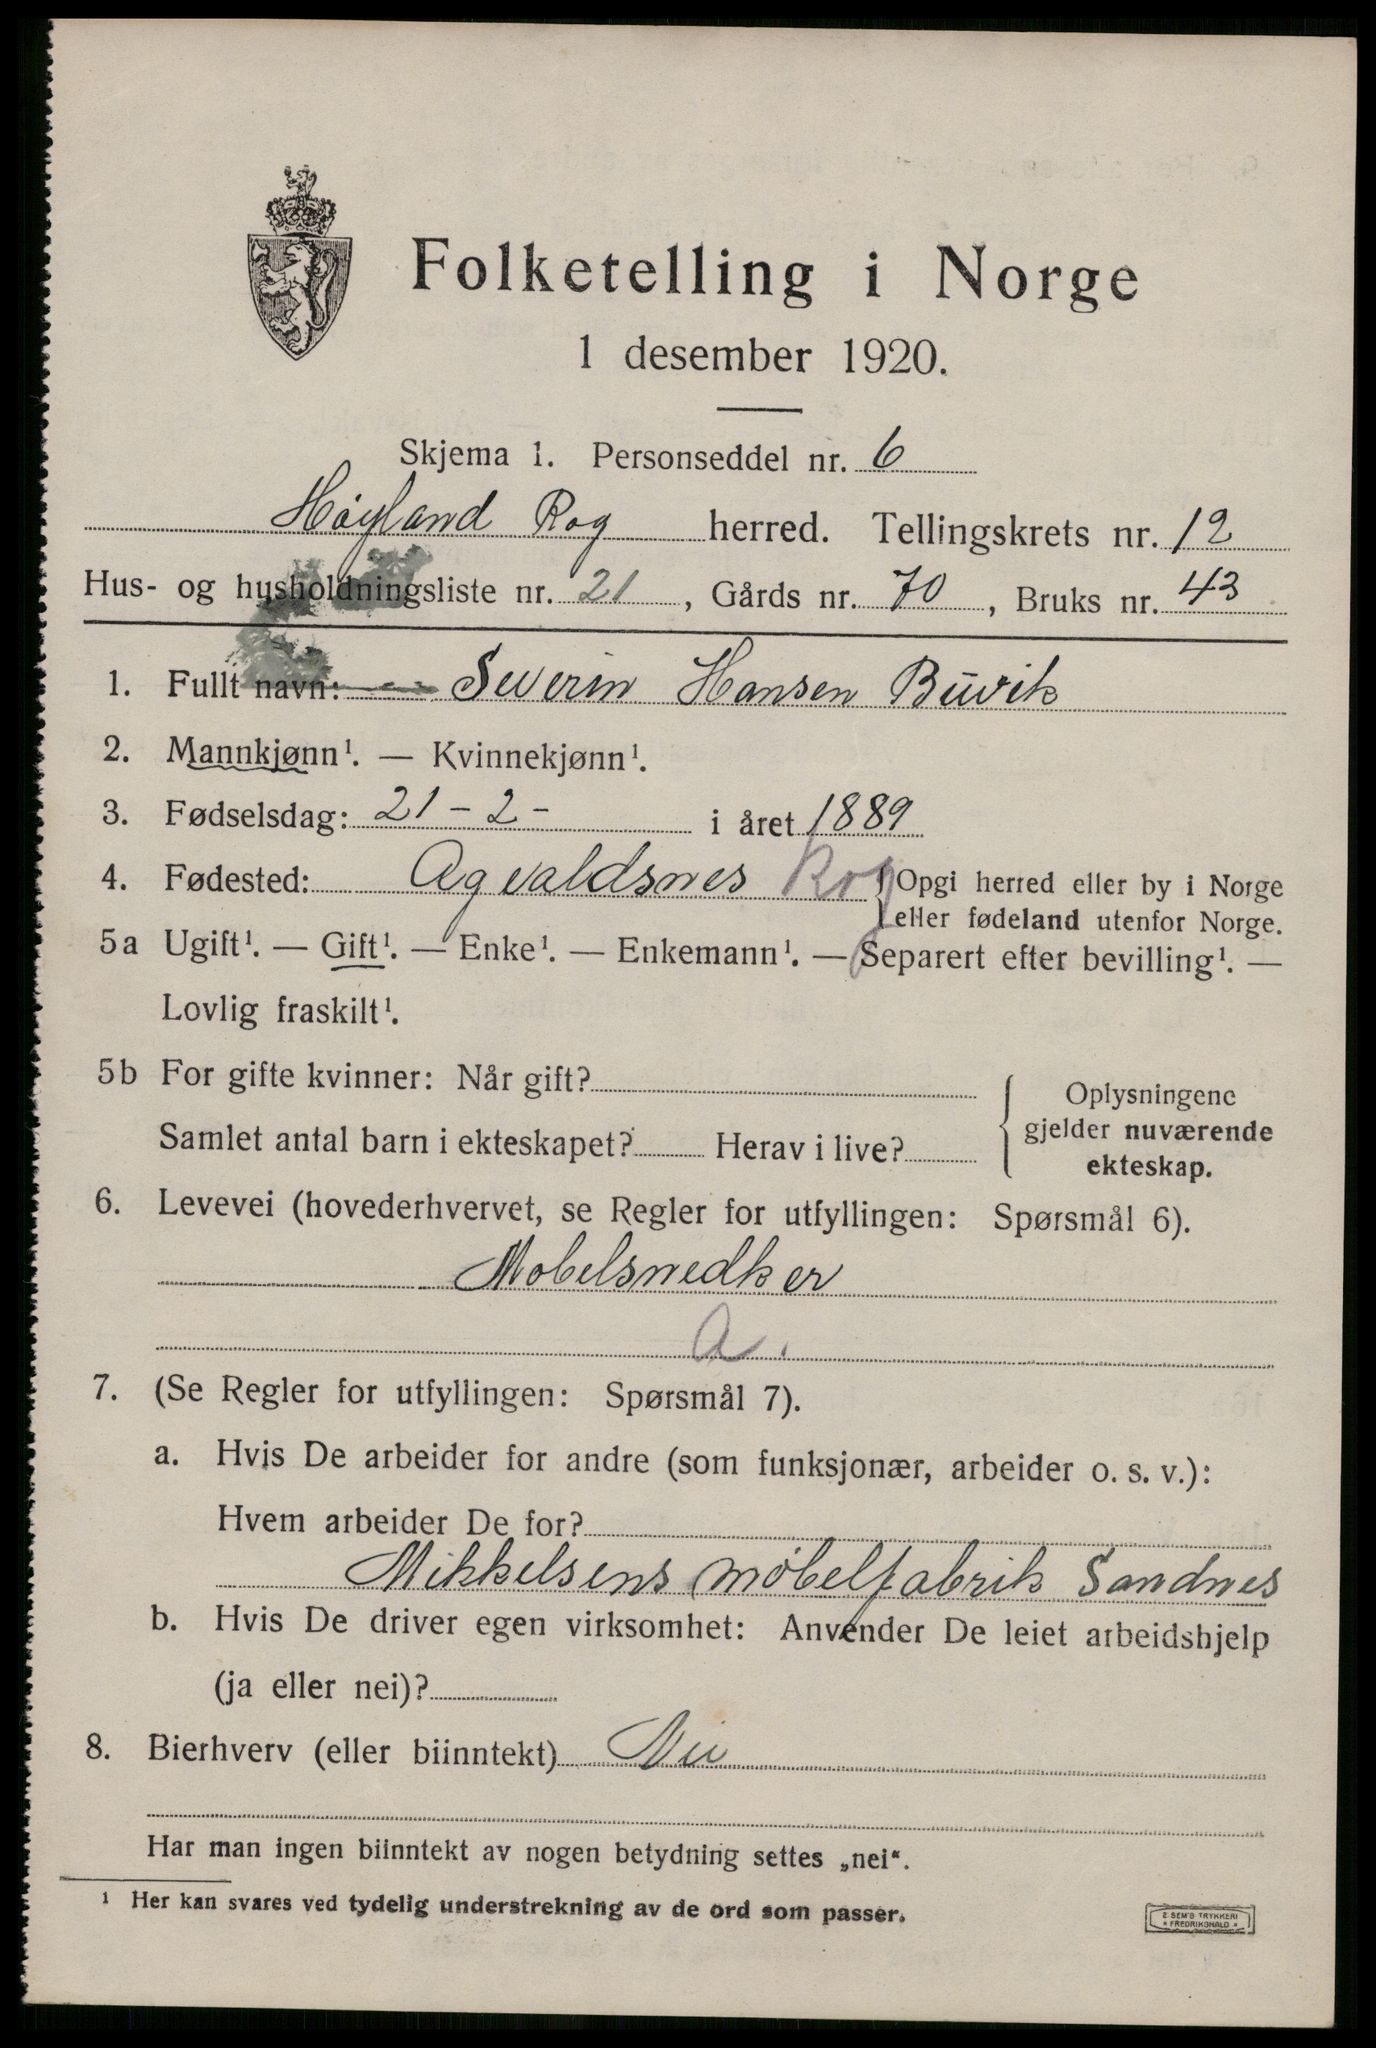 Folketelling i Norge
1 desember 1920.
Skjema 1. Personseddel nr. 6
Høyland Rog herred. Tellingskrets nr. 12
Hus- og husholdningsliste nr. 21, Gårds nr. 70, Bruks nr. 43
1. Fullt navn: Severin Hansen Buvik
2. Mannkjønn¹. — Kvinnekjønn¹.
3. Fødselsdag: 21-2- i året 1889
4. Fødested: Agvaldsnes Rog { Opgi herred eller by i Norge
eller fødeland utenfor Norge.
5a Ugift¹. — Gift¹. — Enke¹. — Enkemann¹. — Separert efter bevilling¹. —
Lovlig fraskilt¹.
5b For gifte kvinner: Når gift?
Samlet antal barn i ekteskapet? Herav i live?
Oplysningene
gjelder nuværende
ekteskap.
6. Levevei (hovederhvervet, se Regler for utfyllingen: Spørsmål 6).
Mobelsnedker
a.
7. (Se Regler for utfyllingen: Spørsmål 7).
a. Hvis De arbeider for andre (som funksjonær, arbeider o. s. v.):
Hvem arbeider De for?
Mikkelsens møbelfabrik Sandnes
b. Hvis De driver egen virksomhet: Anvender De leiet arbeidshjelp
(ja eller nei)?
8. Bierhverv (eller biinntekt) Nei
Har man ingen biinntekt av nogen betydning settes „nei“.
¹ Her kan svares ved tydelig understrekning av de ord som passer.
E SEM'S TRYKKERI
FREDRIKSHALD